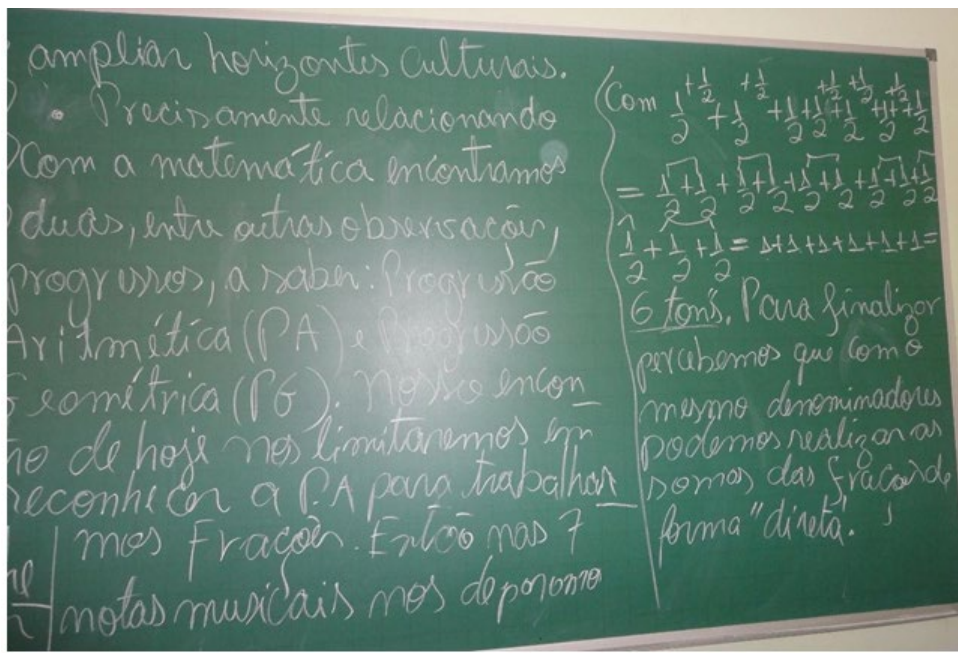 ampliar horizontes culturais.
• Precisamente relacionando
Com a matemática encontramos
duas, entre outras observações,
progressões, a saber: Progressão
Aritmética (PA) e Progressão
Geométrica (PG). Nosso encon_
de hoje nos limitaremos em
reconhecer a PA para trabalhar_
mos Frações. Então nas 7
notas musicais nos
(Com 1/2 + 1/2 + 1/2 + 1/2
= 1/2 + 1/2 + 1/2 + 1/2 + 1/2 + 1/2 + 1/2 + 1/2 + 1/2
1/2 + 1/2 + 1/2 = 1+1+1+1+1+1=
6 tons. Para finalizar
percebemos que com o
mesmo denominadores
podemos realizar as
somas das frações de
forma "direta".